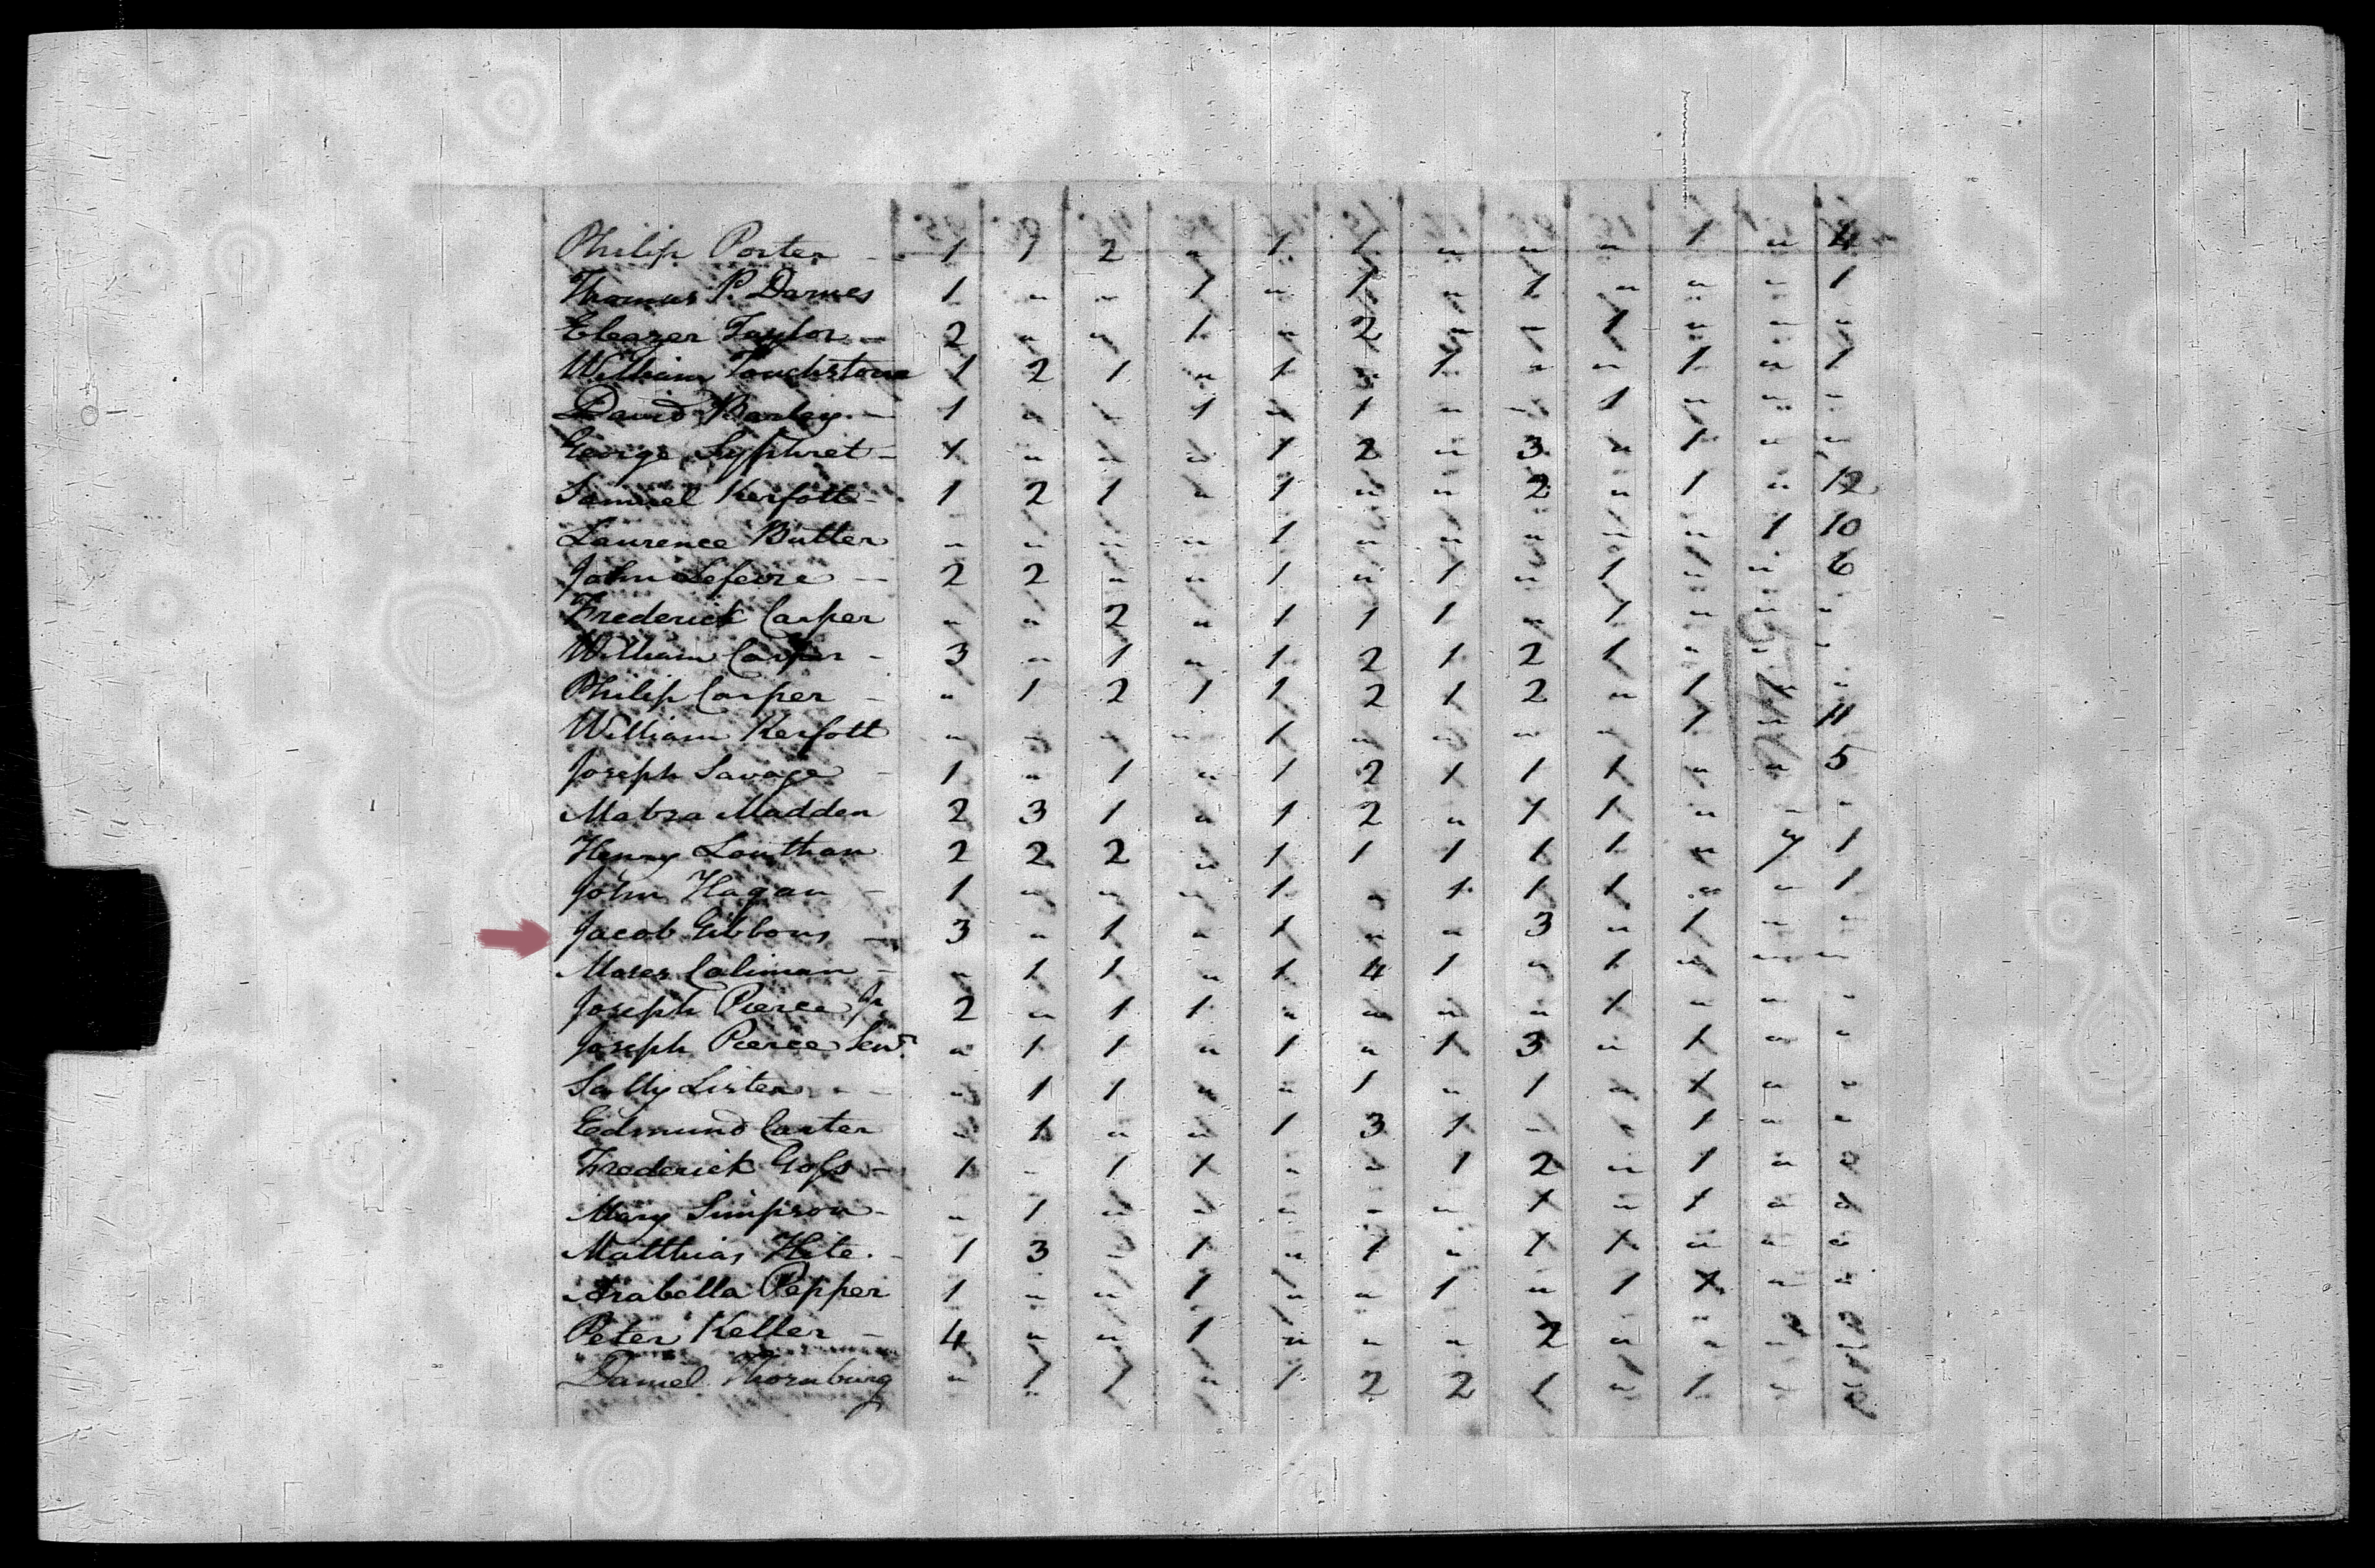 Philip Porter - 1 1 2 " 1 1 " " " 1 " 4
Thomas P. Darnes 1 " " 1 " 1 " 1 " " " 1
Eleazer Taylor - 2 " " 1 " 2 " " 1 " " "
William Touchstone 1 2 1 " 1 " 1 " " 1 " 1
David - 1 " " 1 " 1 " " 1 " " "
George Syphret - 1 " " " 1 2 " 3 " 1 " "
Samuel Kerfott - 1 2 1 " 1 " " 2 " 1 " 12
Laurence Butler " " " " 1 " " " " " 1 10
John Lefevre - 2 2 " " 1 " 1 " 1 " " 6
Frederick Carper " " 2 " 1 1 1 " 1 " " "
William Carper - 3 " 1 " 1 2 1 2 1 " " "
Philip Carper - " 1 2 1 1 2 1 2 " 1 " "
William Kerfott " " " " 1 " " " " 1 " 11
Joseph Savage - 1 " 1 " 1 2 1 1 1 " " 5
Mabra Madden 2 3 1 " 1 2 " 1 1 " " "
Henry Louthan 2 2 2 " 1 1 1 1 1 " 1
John Hagan - 1 " " " 1 " 1 1 1 " " 1
Jacob Gibbons - 3 " 1 " 1 " " 3 " 1 " "
Moses Caliman - " 1 1 " 1 4 1 " 1 " " "
Joseph Pierce Jr. 2 " 1 1 " " " " 1 " " "
Joseph Pierce Senr. " 1 1 " 1 " 1 3 " 1 " "
Sally Lister - - " 1 1 " " 1 " 1 " 1 " "
Edmund Carter " 1 " " 1 3 1 " " 1 " "
Frederick Goss - 1 " 1 1 " " 1 2 " 1 " "
Mary Simpson - " 1 " " " " " 1 " 1 " "
Matthias Hite. - 1 3 " 1 " 1 " 1 1 " " "
Arabella Pepper 1 " " 1 " " 1 " 1 1 " "
Peter Keller - 4 " " 1 " " " 2 " " " "
Daniel Thornburg " 1 1 " 1 2 2 1 " 1 "